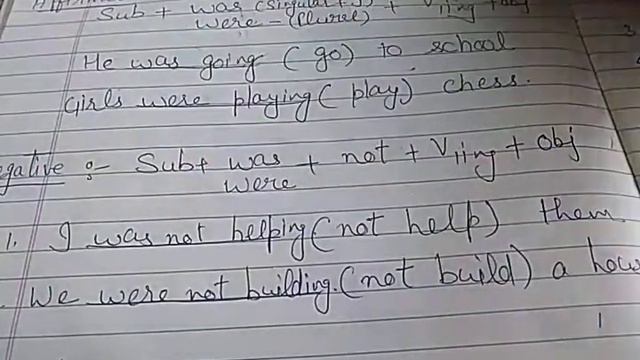 Sub + was (singular + I) + V1ing + obj
were - (Plurel)
He was going (go) to school
Girls were playing (play) chess.
egative :- Sub + was + not + V1ing + Obj
were
1. I was not helping (not help) them.
We were not building. (not build) a hou